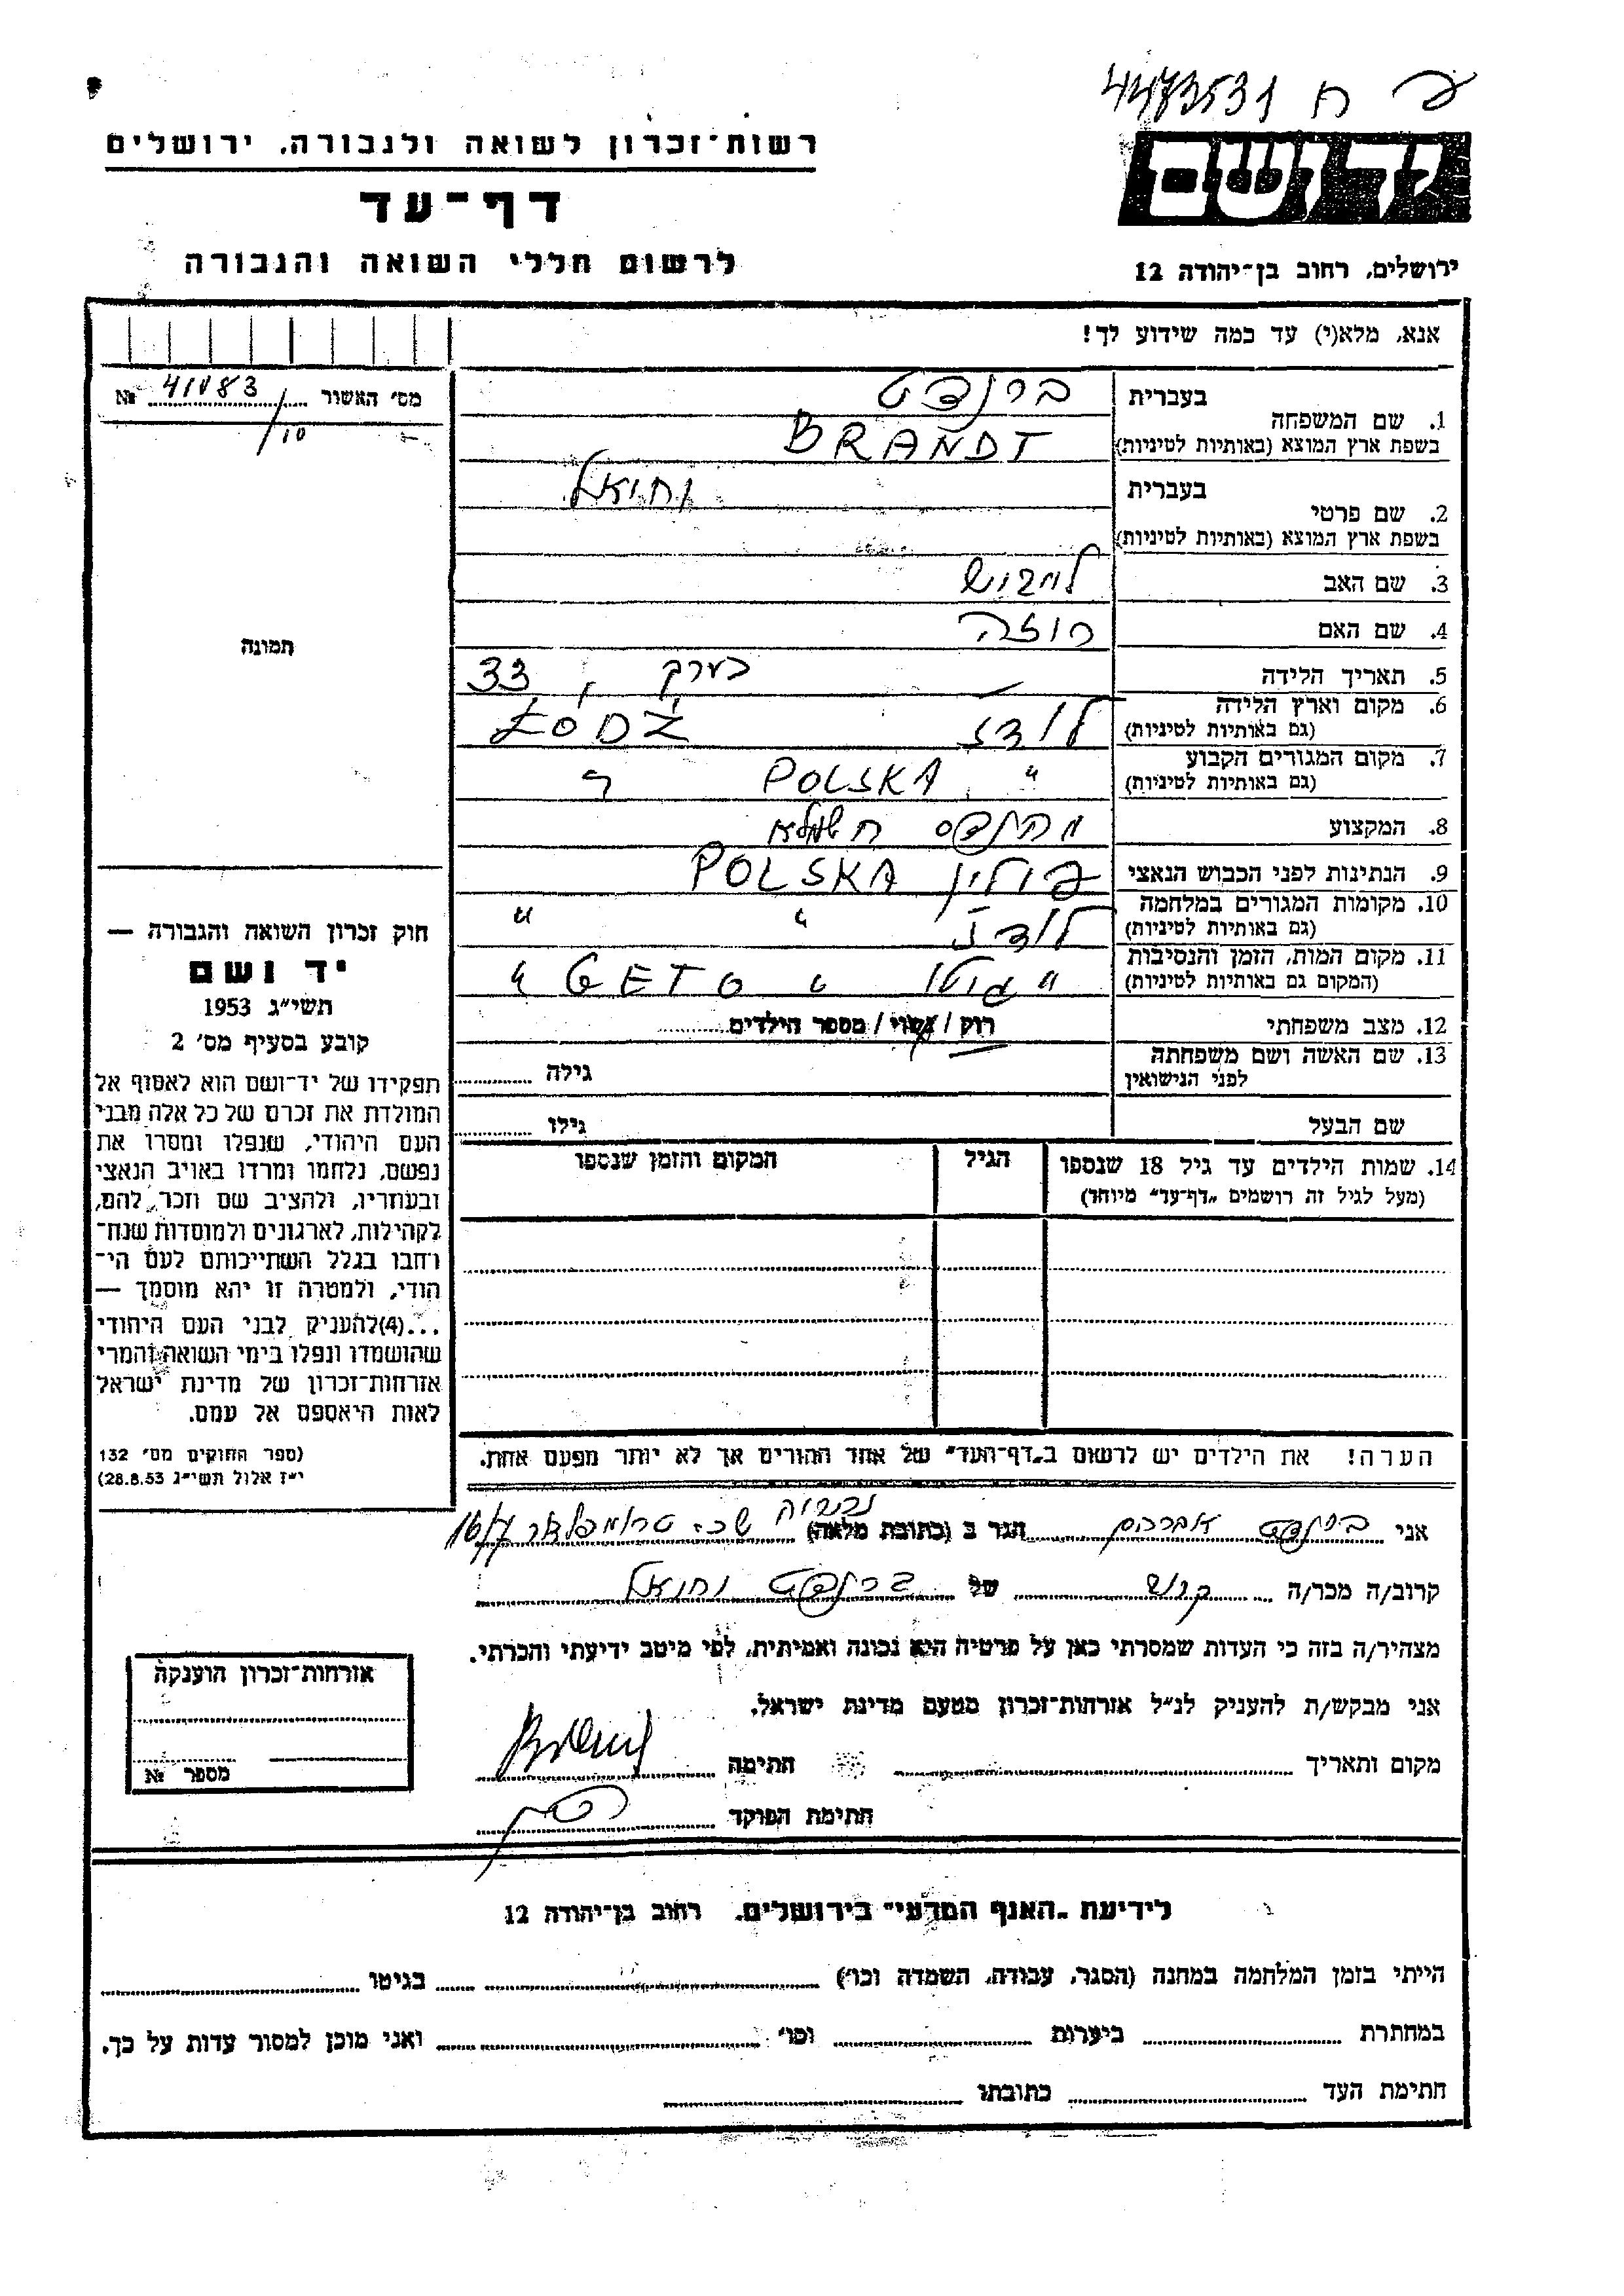 4473531 ח
רשות־זכרון לשואה ולגבורה, ירושלים
דף־עד
לרשום חללי השואה והגבורה
יד ושם
ירושלים, רחוב בן־יהודה 12
אנא, מלא(י) עד כמה שידוע לך!
מס׳ האשור 41183 №
/10
תמונה
1. שם המשפחה
בעברית ברנדט
בשפת ארץ המוצא (באותיות לטיניות) BRANDT
2. שם פרטי
בעברית
בשפת ארץ המוצא (באותיות לטיניות)
3. שם האב
4. שם האם רוזה
5. תאריך הלידה בערך, 33
6. מקום וארץ הלידה
(גם באותיות לטיניות) לודז ŁODŹ
7. מקום המגורים הקבוע
(גם באותיות לטיניות) " POLSKA
8. המקצוע
9. הנתינות לפני הכבוש הנאצי פולין POLSKA
10. מקומות המגורים במלחמה
(גם באותיות לטיניות) לודז " "
11. מקום המות, הזמן והנסיבות
(המקום גם באותיות לטיניות) " גיטו " GETO "
12. מצב משפחתי רוק / נשוי / מספר הילדים
13. שם האשה ושם משפחתה
לפני הנישואין גילה
שם הבעל גילו
14. שמות הילדים עד גיל 18 שנספו
(מעל לגיל זה רושמים „דף־עד״ מיוחד)
הגיל
המקום והזמן שנספו
הערה! את הילדים יש לרשום ב„דף־העד״ של אחד ההורים אך לא יותר מפעם אחת.
חוק זכרון השואה והגבורה —
יד ושם
תשי״ג 1953
קובע בסעיף מס׳ 2
תפקידו של יד־ושם הוא לאסוף אל
המולדת את זכרם של כל אלה מבני
העם היהודי, שנפלו ומסרו את
נפשם, נלחמו ומרדו באויב הנאצי
ובעוזריו, ולהציב שם וזכר להם,
לקהילות, לארגונים ולמוסדות שנח־
רחבו בגלל השתייכותם לעם הי־
הודי, ולמטרה זו יהא מוסמך —
...(4)להעניק לבני העם היהודי
שהושמדו ונפלו בימי השואה והמרי
אזרחות־זכרון של מדינת ישראל
לאות היאספם אל עמם.
(ספר החוקים מס׳ 132
י״ז אלול תשי״ג 28.8.53)
אני ברנדט אברהם הגר ב (כתובת מלאה) נהריה שכ. טרומפלדור 16/7
קרוב/ה מכר/ה של ברנדט
מצהיר/ה בזה כי העדות שמסרתי כאן על פרטיה היא נכונה ואמיתית, לפי מיטב ידיעתי והכרתי.
אני מבקש/ת להעניק לנ״ל אזרחות־זכרון מטעם מדינת ישראל.
מקום ותאריך חתימה
חתימת הפוקד
אזרחות־זכרון הוענקה
מספר №
לידיעת „האגף המדעי״ בירושלים, רחוב בן־יהודה 12
הייתי בזמן המלחמה במחנה (הסגר, עבודה, השמדה וכו׳) בגיטו
במחתרת ביערות וכו׳ ואני מוכן למסור עדות על כך.
חתימת העד כתובתו